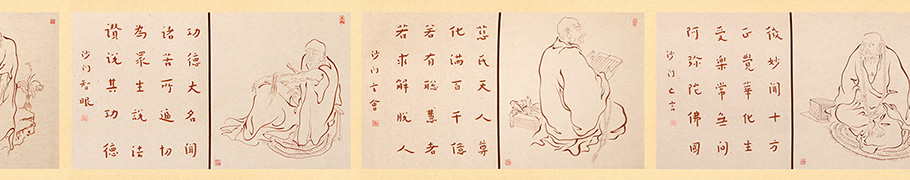 微妙聞十方
正覺華化生
受樂常無間
阿彌陀佛國
沙门亡言
慈氏天人尊
化滿百千億
若有聰慧者
若求解脫人
沙门
功德大名聞
諸苦所逼切
為眾生說法
讚說其功德
沙门智眼